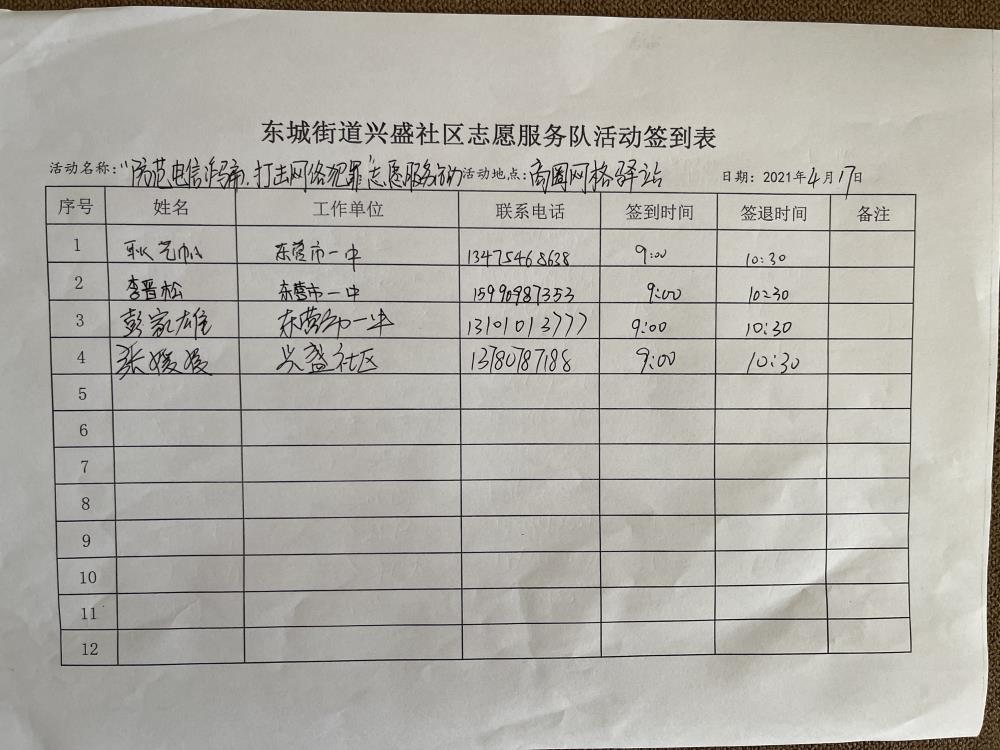 东城街道兴盛社区志愿服务队活动签到表
活动名称:“防范电信诈骗,打击网络犯罪”志愿服务活动 活动地点:商圈网格驿站 日期: 2021年4月17日
序号 姓名 工作单位 联系电话 签到时间 签退时间 备注
1 耿艺 东营市一中 13475468638 9:00 10:30
2 李晋松 东营市一中 15990987353 9:00 10:30
3 彭家雄 东营市一中 13101013777 9:00 10:30
4 张媛媛 兴盛社区 13780787188 9:00 10:30
5
6
7
8
9
10
11
12